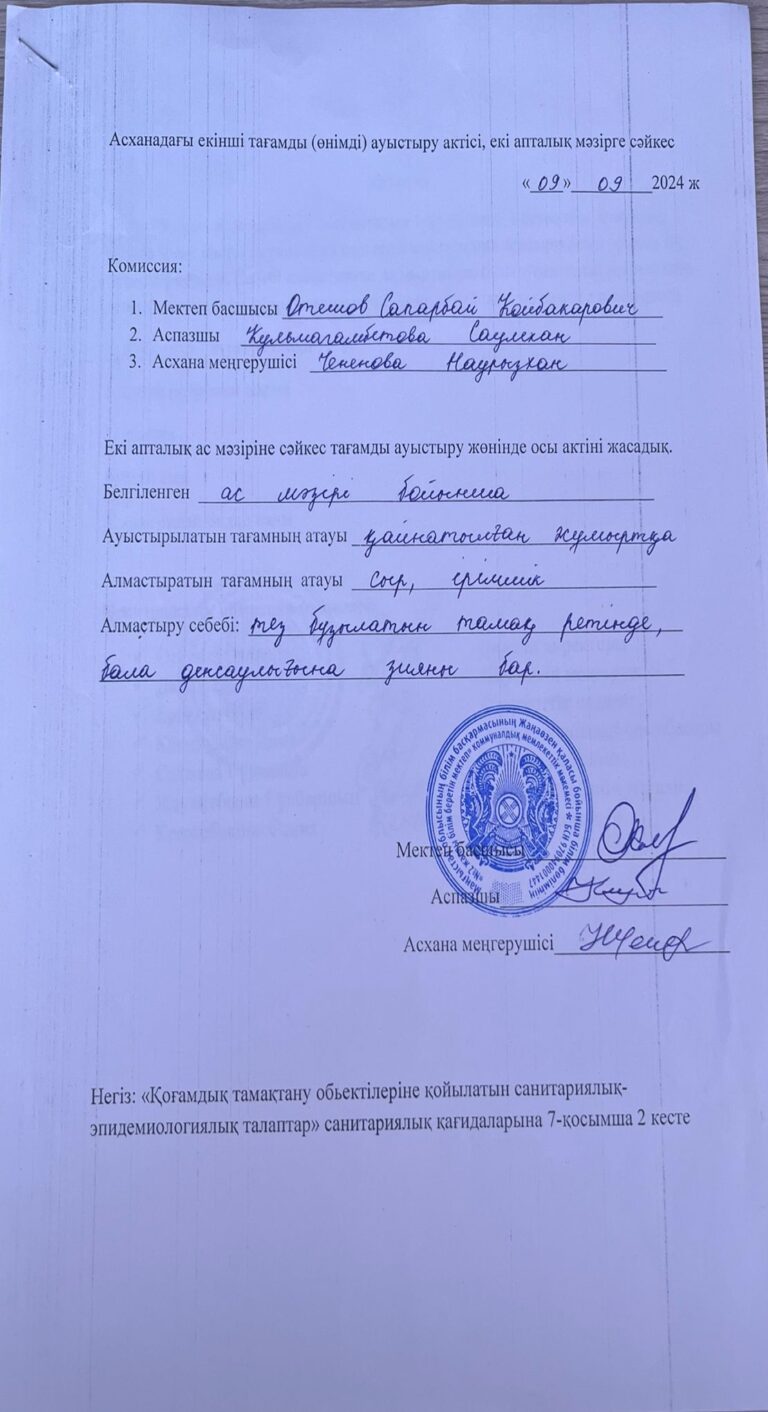 Асханадағы екінші тағамды (өнімді) ауыстыру актісі, екі апталық мәзірге сәйкес
«09» 09 2024 ж
Комиссия:
1. Мектеп басшысы Отешов Сапарбай Койбакарович
2. Аспазшы Кульмагамбетова Саулехан
3. Асхана меңгерушісі Чепенова Наурызхан
Екі апталық ас мәзіріне сәйкес тағамды ауыстыру жөнінде осы актіні жасадық.
Белгіленген ас мәзірі бойынша
Ауыстырылатын тағамның атауы қайнатылған жұмыртқа
Алмастыратын тағамның атауы сыр, ірімшік
Алмастыру себебі: тез бұзылатын тамақ ретінде,
бала денсаулығына зияны бар.
Маңғыстау облысының білім басқармасының Жаңаөзен қаласы бойынша білім бөлімінің
жалпы білім беретін мектеп» коммуналдық мемлекеттік мекемесі
Мектеп басшысы
Аспазшы
Асхана меңгерушісі
Негіз: «Қоғамдық тамақтану обьектілеріне қойылатын санитариялық-
эпидемиологиялық талаптар» санитариялық қағидаларына 7-қосымша 2 кесте